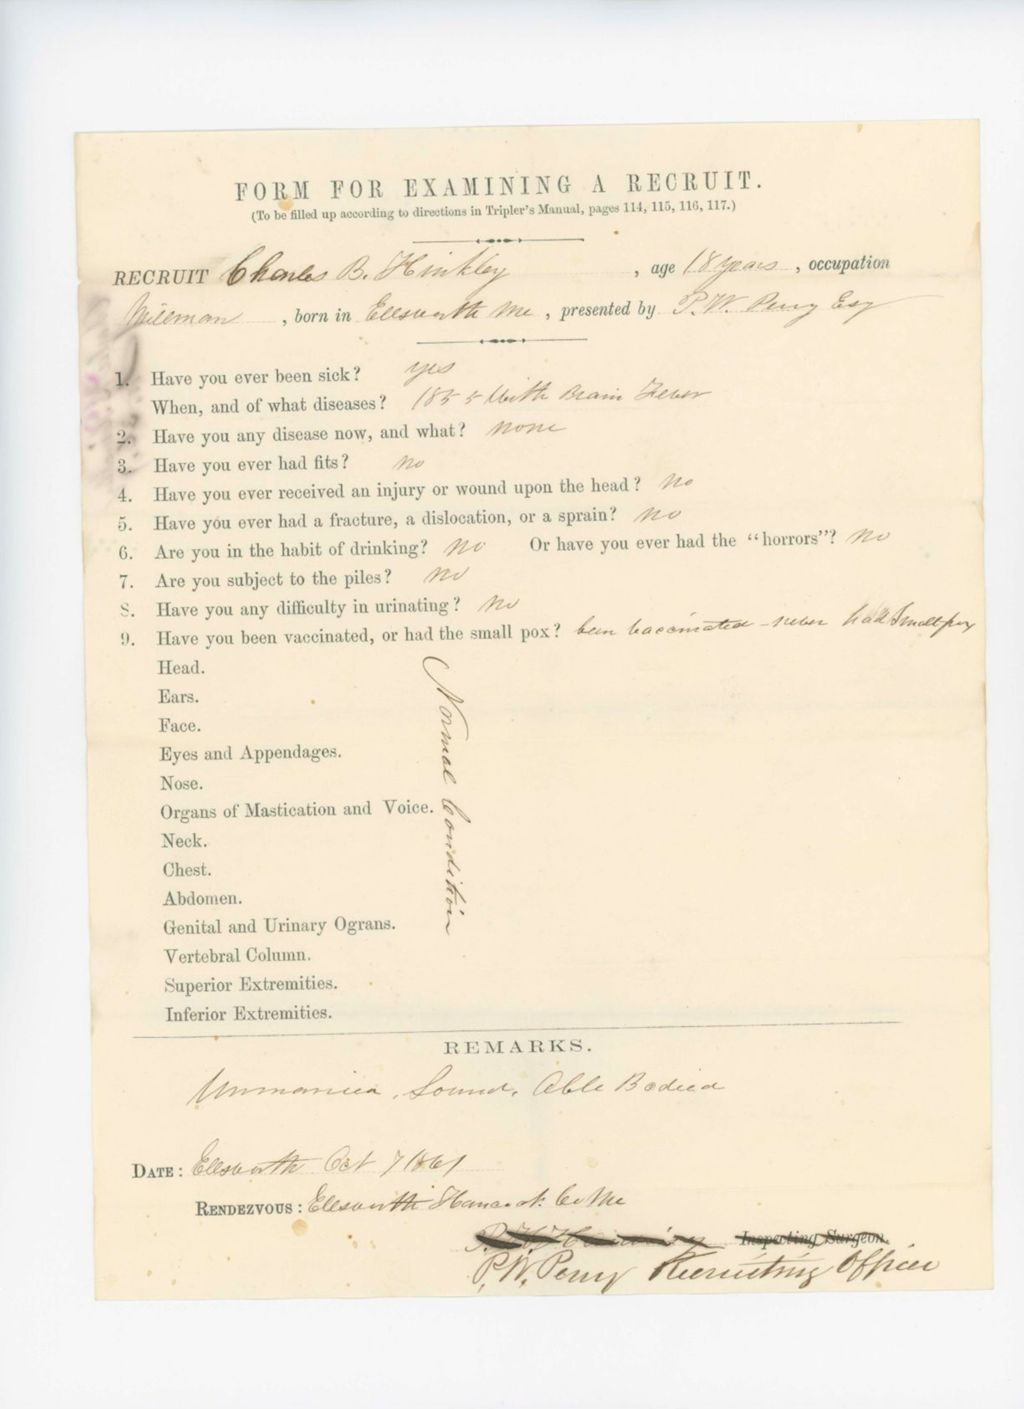 FORM FOR EXAMINING A RECRUIT.
(To be filled up according to directions in Tripler's Manual, pages 114, 115, 116, 117.)
RECRUIT Charles B. Hinkley, age 18 years, occupation
Millman, born in Ellsworth Me, presented by P. W. Perry Esq
1. Have you ever been sick? yes
When, and of what diseases? 1855 With Brain Fever
2. Have you any disease now, and what? none
3. Have you ever had fits? No
4. Have you ever received an injury or wound upon the head? No
5. Have you ever had a fracture, a dislocation, or a sprain? No
6. Are you in the habit of drinking? No Or have you ever had the "horrors"? No
7. Are you subject to the piles? No
8. Have you any difficulty in urinating? No
9. Have you been vaccinated, or had the small pox? been vaccinated - never had Small pox
Head.
Ears.
Face.
Eyes and Appendages.
Nose.
Organs of Mastication and Voice.
Neck.
Chest.
Abdomen.
Genital and Urinary Ograns.
Vertebral Column.
Superior Extremities.
Inferior Extremities.
Normal Condition
REMARKS.
Unmarried, Sound, Able Bodied
DATE: Ellsworth Oct 7 1861
RENDEZVOUS: Ellsworth Hancock Co Me
Inspecting Surgeon.
P. W. Perry Recruiting Officer